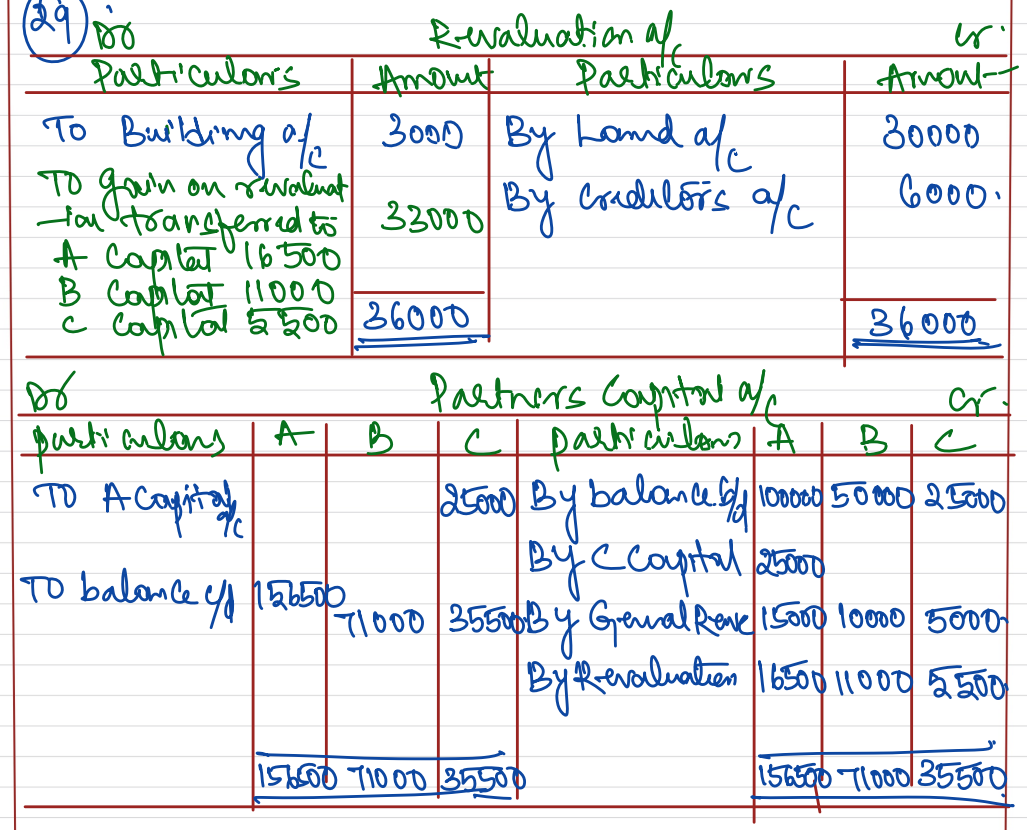 29 Dr Revaluation a/c cr.
Particulars Amount Particulars Amount
To Building a/c 3000 By Land a/c 30000
To gain on revaluat
-ion transferred to 33000 By creditors a/c 6000.
A Capital 16500
B Capital 11000
C Capital 5500 36000 36000
Dr Partners Capital a/c cr.
particulars A B C particulars A B C
To A Capital a/c 25000 By balance b/d 100000 50000 25000
By C Capital 25000
To balance c/d 156500 71000 35500 By General Reve 15000 10000 5000
By Revaluation 16500 11000 5500
156500 71000 35500 156500 71000 35500